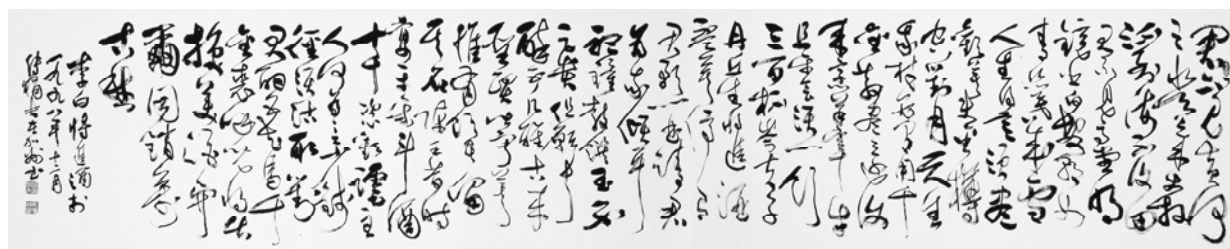 君不見黃河
之水天上來奔
流到海不復回
君不見高堂明
鏡悲白髮朝如
青絲暮成雪
人生得意須盡
歡莫使金樽
空對月天生
我材必有用千
金散盡還復
來烹羊宰牛
且為樂會須一飲
三百杯岑夫子
丹丘生將進酒
君歌一曲請君
為我傾耳
鐘鼓饌玉不
足貴但願長
醉不 古來
聖賢皆寂寞
惟有飲者留
其名陳王昔時
宴平樂斗酒
十千恣歡謔主
人何為言少錢
徑須沽取對
君酌五花馬千
金裘呼兒將出
換美酒與
爾同銷萬
古愁
李白將進酒
一九九八年十二月